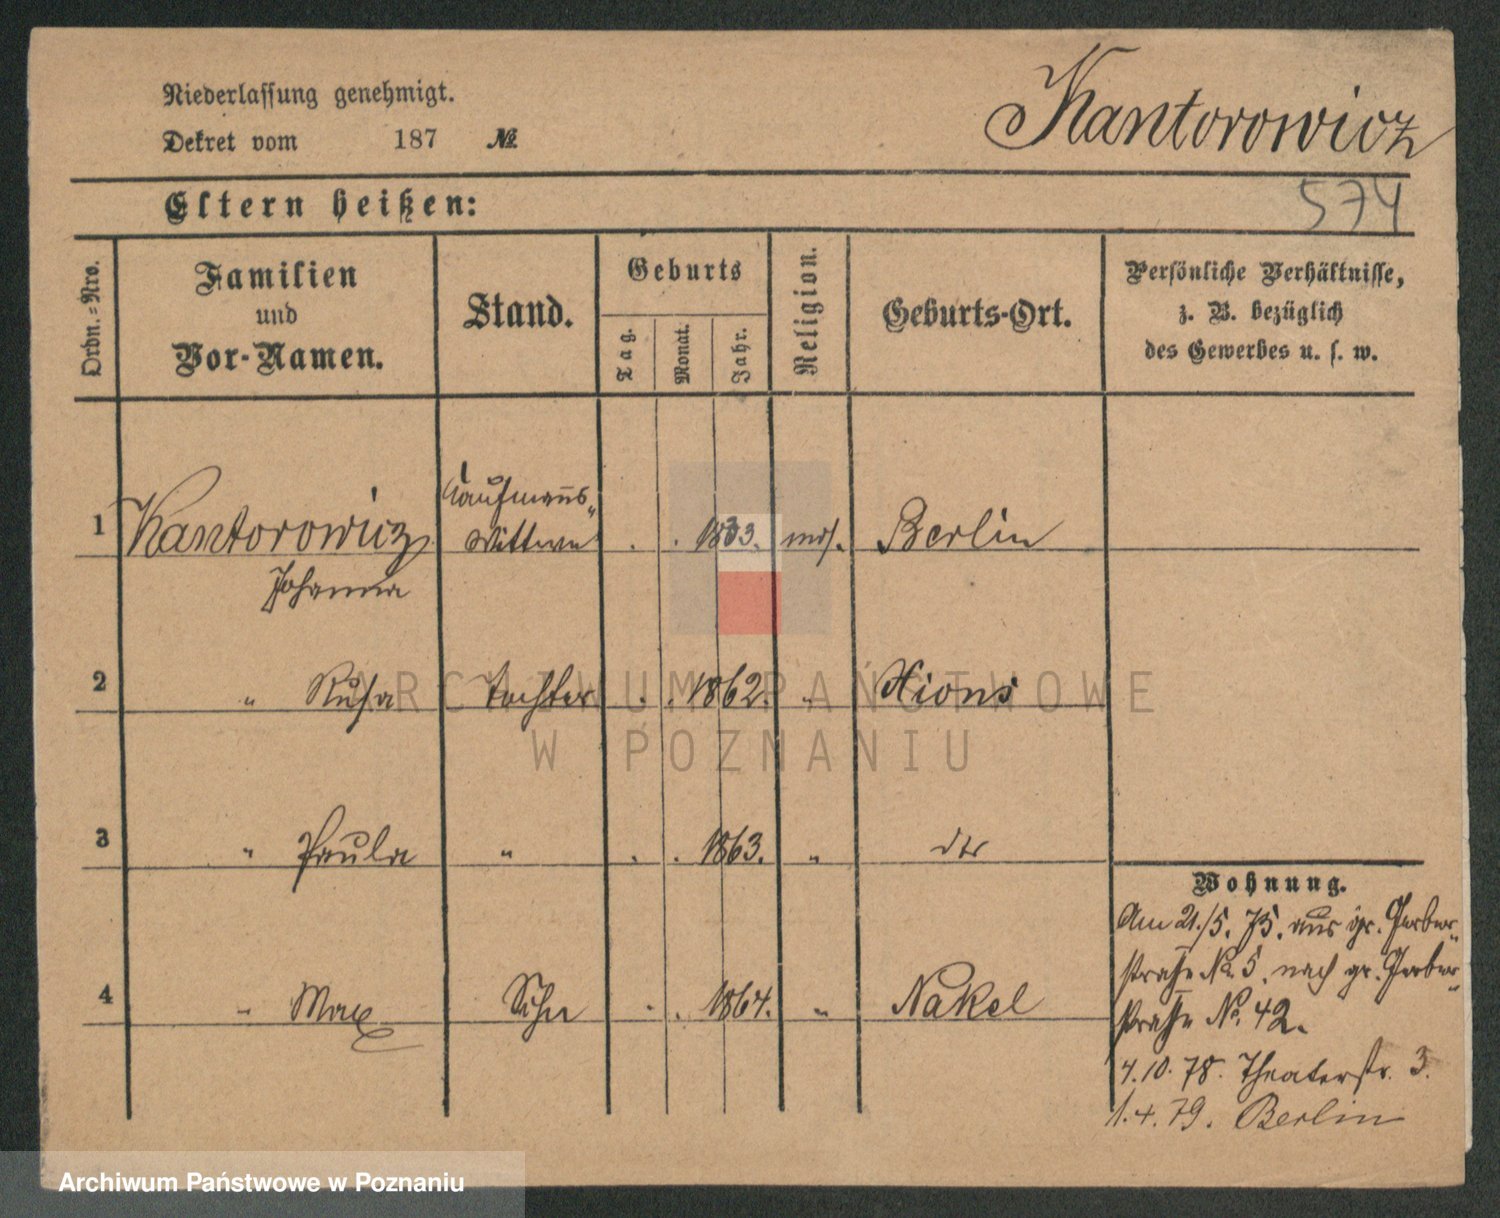 Niederlassung genehmigt.
Dekret vom 187 №
Kantorowicz
574
Eltern heißen:
Ordn.=Nro.
Familien
und
Vor-Namen.
Stand.
Geburts
Tag.
Monat.
Jahr.
Religion.
Geburts-Ort.
Persönliche Verhältnisse,
z. B. bezüglich
des Gewerbes u. s. w.
Kaufmanns-
1 Kantorowicz Wittwe . . 1833. mos. Berlin
Johanna
2 " Rosa Tochter . . 1862. " Xions
3 " Paula " . . 1863. " dto
4 " Max Sohn . . 1864. " Nakel
Wohnung.
Am 21./5. 75. aus gr. Gerber-
straße No. 5. nach gr. Gerber-
straße No. 42.
4.10.78. Theaterstr. 3.
1.4.79. Berlin
ARCHIWUM PAŃSTWOWE
W POZNANIU
Archiwum Państwowe w Poznaniu